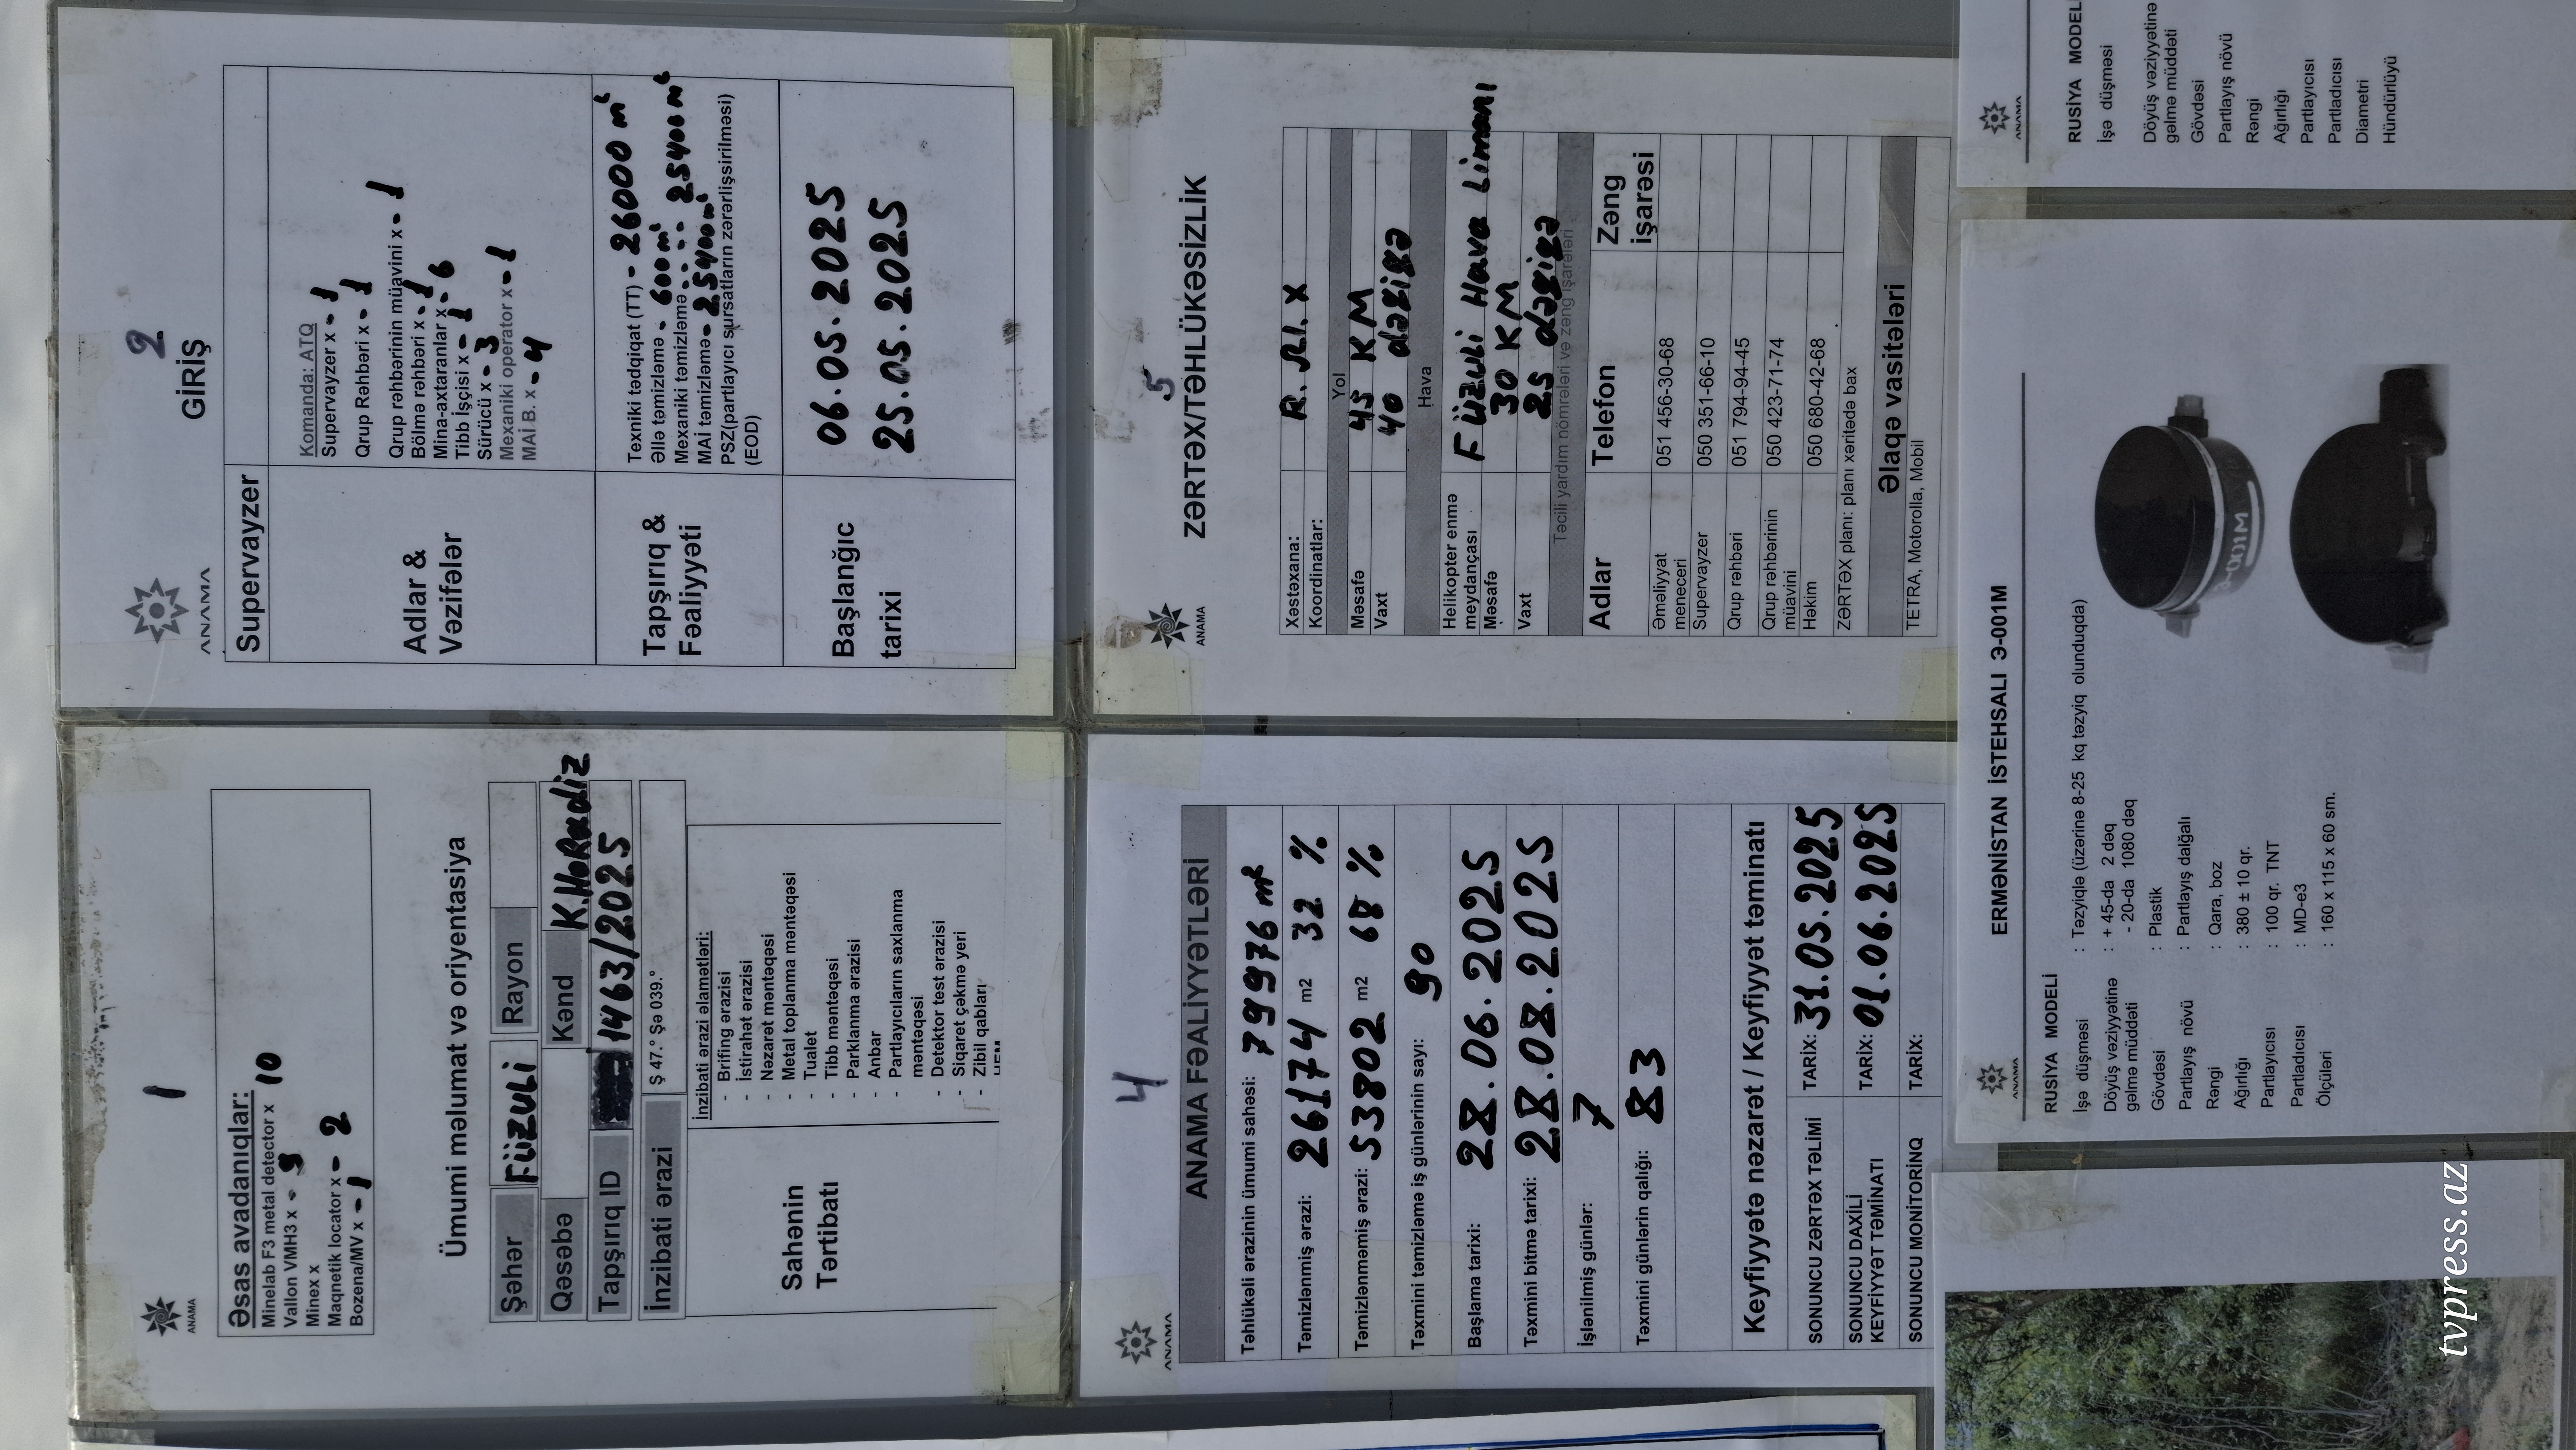 1
ANAMA
Əsas avadanıqlar:
Minelab F3 metal detector x 10
Vallon VMH3 x - 3
Minex x
Maqnetik locator x - 2
Bozena/MV x - 1
Ümumi məlumat və oriyentasiya
Şəhər Füzuli Rayon
Qəsəbə Kənd K.Horadiz
Tapşırıq ID 1463/2025
İnzibati ərazi Ş 47.° Şə 039.°
Sahənin Tərtibatı
İnzibati ərazi əlamətləri:
- Brifinq ərazisi
- İstirahət ərazisi
- Nəzarət məntəqəsi
- Metal toplanma məntəqəsi
- Tualet
- Tibb məntəqəsi
- Parklanma ərazisi
- Anbar
- Partlayıcıların saxlanma
məntəqəsi
- Detektor test ərazisi
- Siqaret çəkmə yeri
- Zibil qabları
2
ANAMA
GİRİŞ
Supervayzer
Adlar & Vəzifələr
Komanda: ATQ
Supervayzer x - 1
Qrup Rəhbəri x - 1
Qrup rəhbərinin müavini x - 1
Bölmə rəhbəri x - 1
Mina-axtaranlar x - 6
Tibb İşçisi x - 1
Sürücü x - 3
Mexaniki operator x - 1
MAİ B. x - 4
Tapşırıq & Fəaliyyəti
Texniki tədqiqat (TT) - 26000 m²
Əllə təmizləmə - 600 m²
Mexaniki təmizləmə - 25400 m²
MAİ təmizləmə - 25400 m²
PSZ(partlayıcı sursatların zərərlişsirilməsi)
(EOD)
Başlanğıc tarixi
06.05.2025
25.05.2025
4
ANAMA
ANAMA FƏALİYYƏTLƏRİ
Təhlükəli ərazinin ümumi sahəsi: 79976 m²
Təmizlənmiş ərazi: 26174 m2 32 %
Təmizlənməmiş ərazi: 53802 m2 68 %
Təxmini təmizləmə iş günlərinin sayı: 90
Başlama tarixi: 28.06.2025
Təxmini bitmə tarixi: 28.08.2025
İşlənilmiş günlər: 7
Təxmini günlərin qalığı: 83
Keyfiyyətə nəzarət / Keyfiyyət təminatı
SONUNCU ZƏRTƏX TƏLİMİ TARİX: 31.05.2025
SONUNCU DAXİLİ
KEYFİYYƏT TƏMİNATI TARİX: 01.06.2025
SONUNCU MONİTORİNQ TARİX:
5
ANAMA
ZƏRTƏX/TƏHLÜKƏSİZLİK
Xəstəxana:
Koordinatlar:
Yol
Məsafə 45 KM
Vaxt 40 dəqiqə
Hava
Helikopter enmə
meydançası Füzuli Hava Limanı
Məsafə 30 KM
Vaxt 25 dəqiqə
Təcili yardım nömrələri və zəng işarələri
Adlar Telefon Zəng işarəsi
Əməliyyat
meneceri 051 456-30-68
Supervayzer 050 351-66-10
Qrup rəhbəri 051 794-94-45
Qrup rəhbərinin
müavini 050 423-71-74
Həkim 050 680-42-68
ZƏRTƏX planı: planı xəritədə bax
Əlaqə vasitələri
TETRA, Motorolla, Mobil
ANAMA
ERMƏNİSTAN İSTEHSALI Э-001M
RUSİYA MODELİ
İşə düşməsi : Təzyiqlə (üzərinə 8-25 kq təzyiq olunduqda)
Döyüş vəziyyətinə : + 45-da 2 dəq
gəlmə müddəti - 20-da 1080 dəq
Gövdəsi : Plastik
Partlayış növü : Partlayış dalğalı
Rəngi : Qara, boz
Ağırlığı : 380 ± 10 qr.
Partlayıcısı : 100 qr. TNT
Partladıcısı : MD-e3
Ölçüləri : 160 x 115 x 60 sm.
ANAMA
RUSİYA MODEL
İşə düşməsi
Döyüş vəziyyətinə
gəlmə müddəti
Gövdəsi
Partlayış növü
Rəngi
Ağırlığı
Partlayıcısı
Partladıcısı
Diametri
Hündürlüyü
tvpress.az